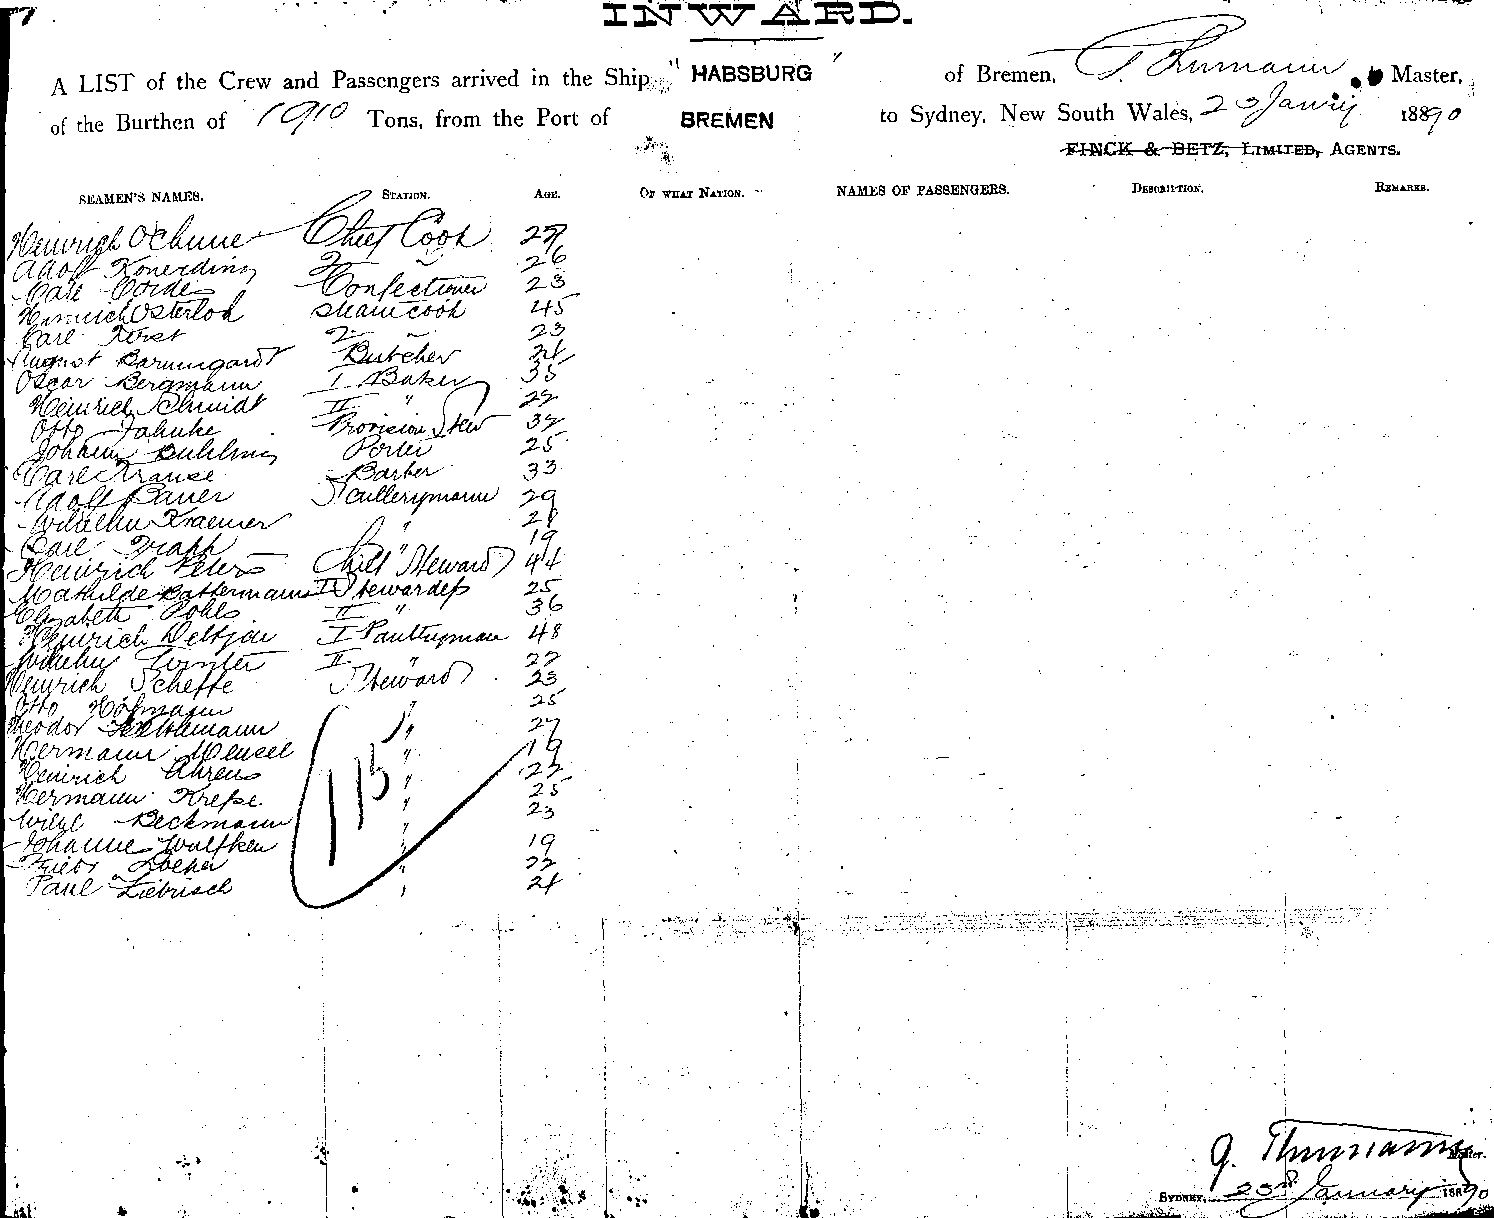 INWARD.
A LIST of the Crew and Passengers arrived in the Ship "HABSBURG" of Bremen, Thumann Master,
of the Burthen of 1910 Tons, from the Port of BREMEN to Sydney, New South Wales, 23 Janry 1890
FINCK & BETZ, LIMITED, AGENTS.
SEAMEN'S NAMES. STATION. AGE. OF WHAT NATION. NAMES OF PASSENGERS. DESCRIPTION. REMARKS.
Heinrich Chief Cook 27
Adolf Konerding 2 " 26
Carl Cordes Confectioner 23
Hinnrich Osterloh Steamcook 45
Carl Kerst 2 " 23
August Baumgardt Butcher 24
Oscar Bergmann I Baker 35
Heinrich Schmidt II " 22
Otto Jahnke Provision Stew 32
Johann Porter 25
Carl Krause Barber 33
Adolf Bauer Scullerymann 29
Wilhelm Kraemer " 21
Carl Trapp " 19
Heinrich Peters Chief Steward 44
Mathilde Battermann I Stewardess 25
Elizabeth Pohls II " 36
Heinrich Deltjen I Pantryman 48
Wilhelm II " 22
Heinrich Scheffe Steward 23
Otto Hofmann " 25
Theodor " 27
Hermann Mensel " 19
Heinrich Ahrens " 22
Hermann Kresse " 25
Wilhl Beckmann " 23
Johanne Wulfken " 19
" 22
Paul Liebrisch " 24
115
G. Thumann Master.
SYDNEY, 23rd January 1890